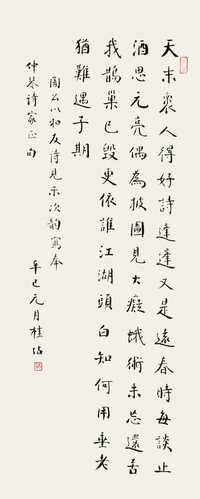 天末人得好詩又是遠春時每談止
酒思元亮偶為披圖見大癡蛾術未忘還苦
我鵲巢已毀更依誰江湖頭白知何用垂老
猶難遇子期
園公以和友詩見示次韻寫奉
仲琴詩家正句
辛巳元月桂坫